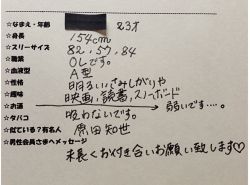 ☆なまえ・年齢 23才
☆身長 154cm
☆スリーサイズ 82，57，84
☆職業 OLです。
☆血液型 A型
☆性格 明るい，さみしがりや
☆趣味 映画，読書，スノーボード
☆お酒 弱いです…。
☆タバコ 吸わないです。
☆似ている？有名人 原田知世
☆男性会員さまへメッセージ
末長くお付き合いお願い致します♡